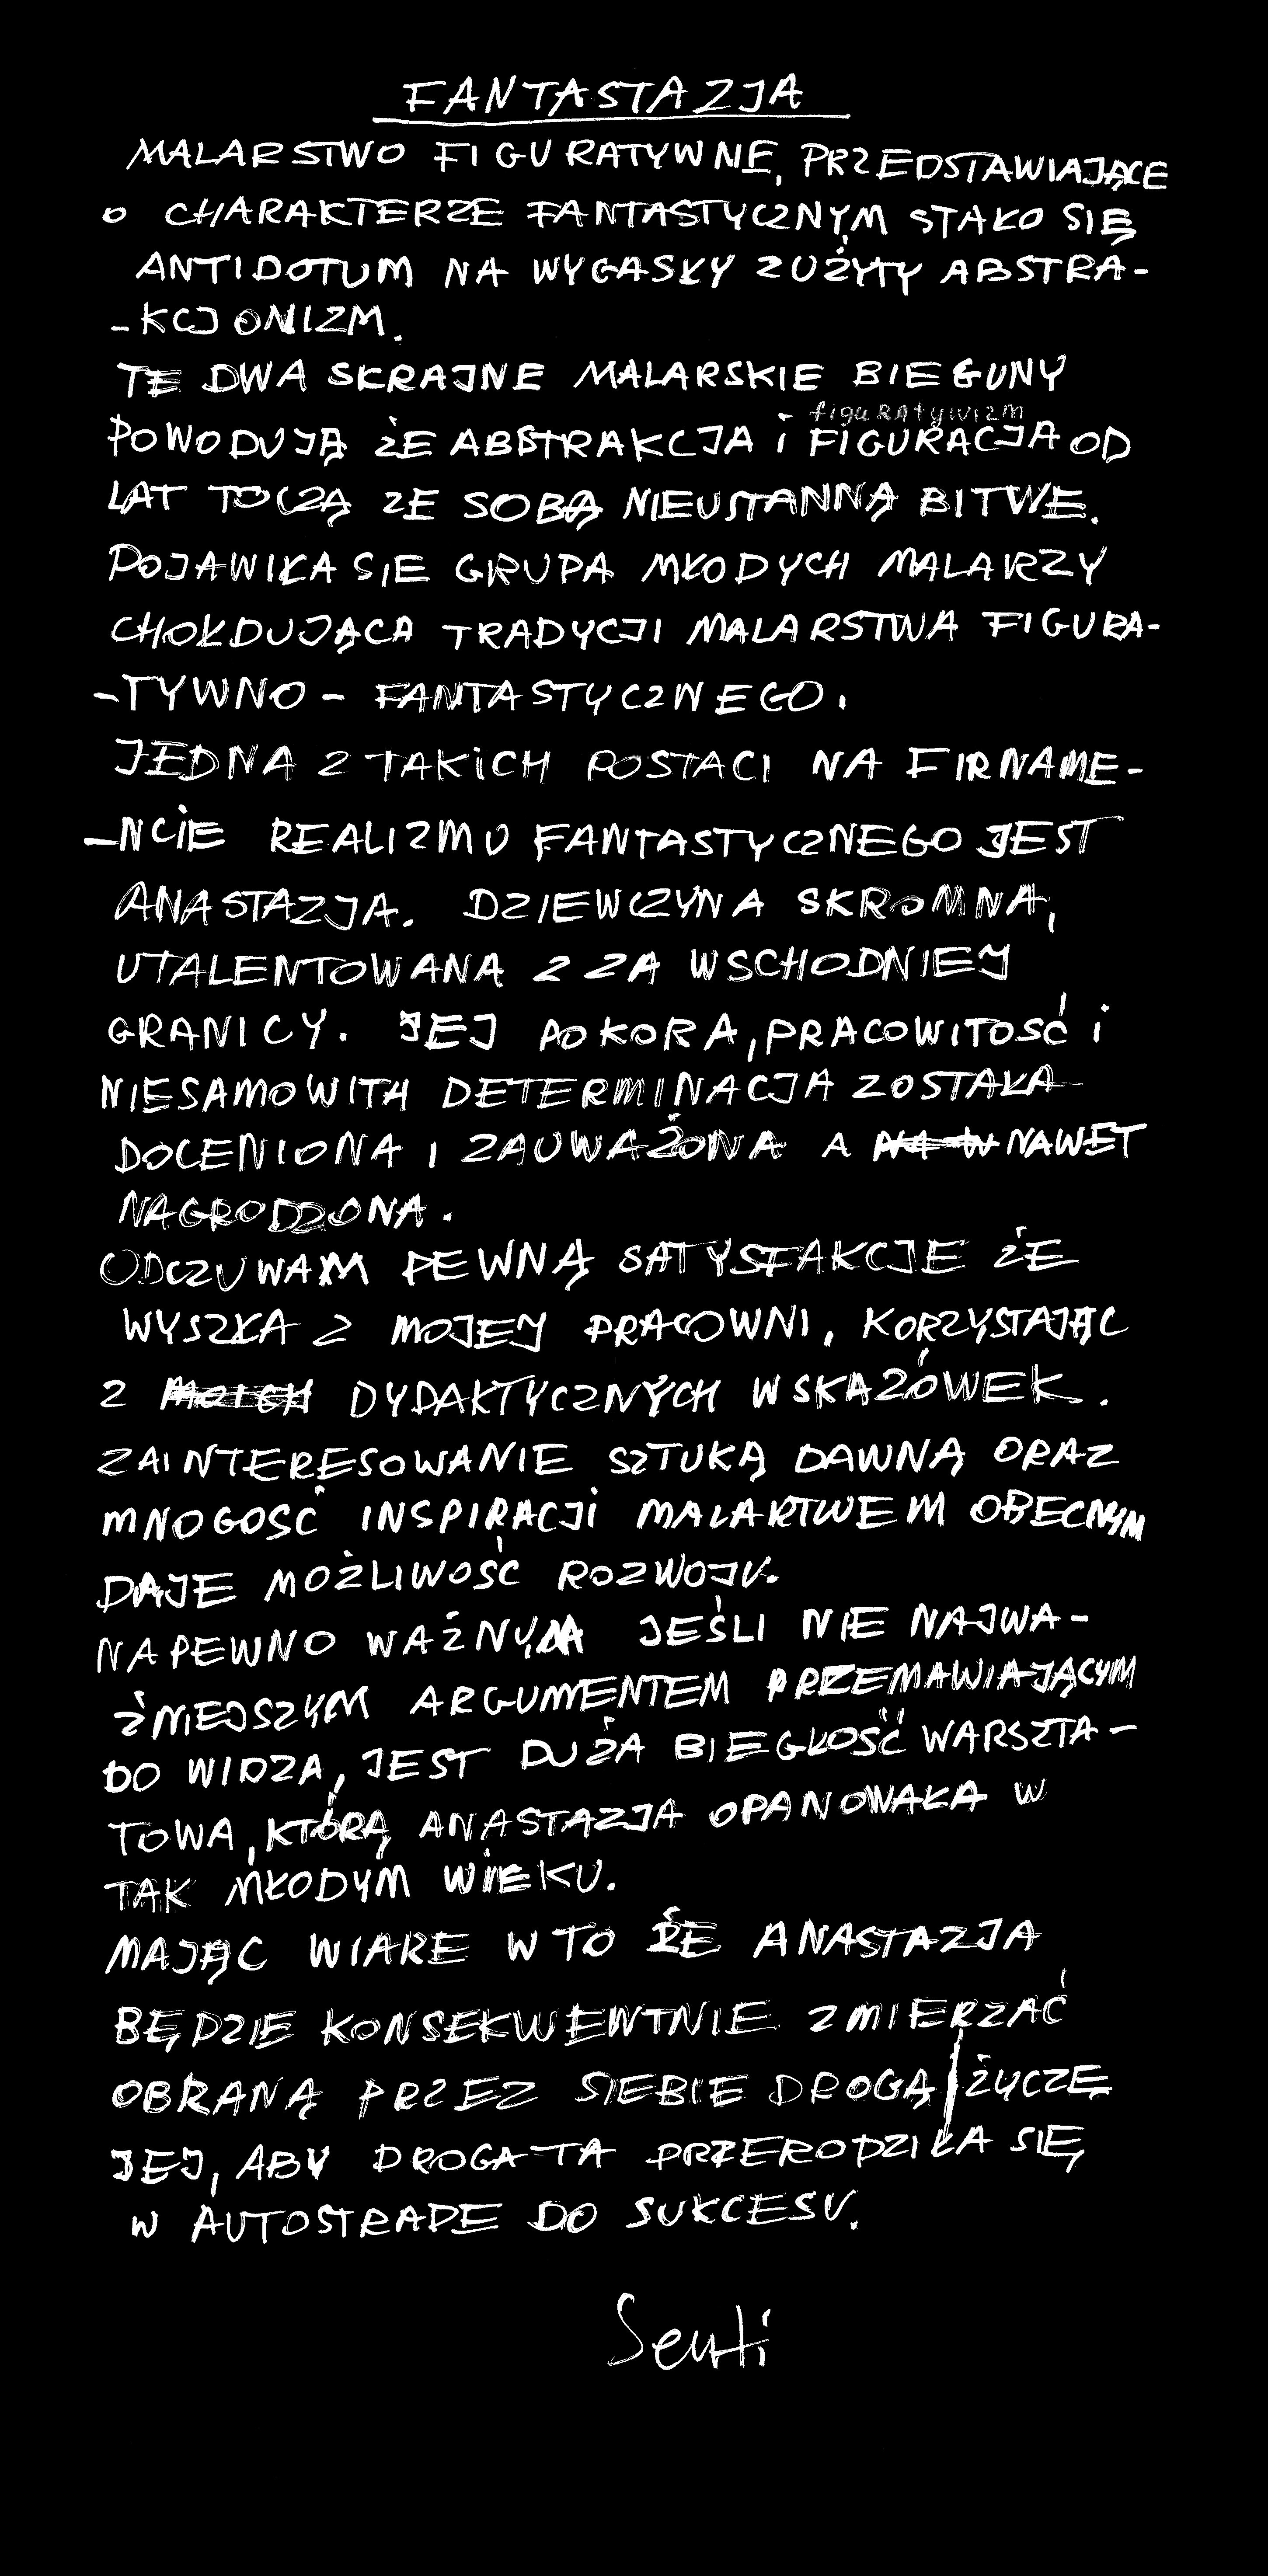 FANTASTAZJA
MALARSTWO FIGURATYWNE, PRZEDSTAWIAJĄCE
O CHARAKTERZE FANTASTYCZNYM STAŁO SIĘ
ANTIDOTUM NA WYGASŁY ZUŻYTY ABSTRA-
-KCJONIZM.
TE DWA SKRAJNE MALARSKIE BIEGUNY
figuRAtywizm
POWODUJĄ ŻE ABSTRAKCJA i FIGURACJA OD
LAT TOCZĄ ZE SOBĄ NIEUSTANNĄ BITWE.
POJAWIŁA SIE GRUPA MŁODYCH MALARZY
CHOŁDUJĄCA TRADYCJI MALARSTWA FIGURA-
-TYWNO - FANTASTYCZNEGO.
JEDNA Z TAKiCH POSTACI NA FIRNAME-
-NCiE REALIZMU FANTASTYCZNEGO JEST
ANASTAZJA. DZIEWCZYNA SKROMNA,
UTALENTOWANA Z ZA WSCHODNIEJ
GRANICY. JEJ POKORA, PRACOWITOŚĆ i
NIESAMOWITA DETERMINACJA ZOSTAŁA
DOCENIONA I ZAUWAŻONA A NA W NAWET
NAGRODZONA.
ODCZUWAM PEWNĄ SATYSFAKCJE ŻE
WYSZŁA Z MOJEJ PRACOWNI, KORZYSTAJĄC
Z MOICH DYDAKTYCZNYCH WSKAZÓWEK.
ZAINTERESOWANIE SZTUKĄ DAWNĄ ORAZ
MNOGOSĆ INSPIRACJi MALARTWEM OBECNYM
DAJE MOŻLIWOŚĆ ROZWOJU.
NAPEWNO WAŻNYM JEŚLI NIE NAJWA-
ŻNIEJSZYM ARGUMENTEM PRZEMAWIAJĄCYM
DO WIDZA, JEST DUŻA BIEGŁOŚĆ WARSZTA-
TOWA, KTÓRĄ ANASTAZJA OPANOWAŁA W
TAK MŁODYM WiEKU.
MAJĄC WIARE W TO ŻE ANASTAZJA
BĘDZIE KONSEKWENTNIE ZMIERZAĆ
OBRANĄ PRZEZ SIEBIE DROGĄ, ŻYCZĘ
JEJ, ABY DROGA TA PRZERODZIŁA SIĘ
W AUTOSTRADE DO SUKCESU.
Senti